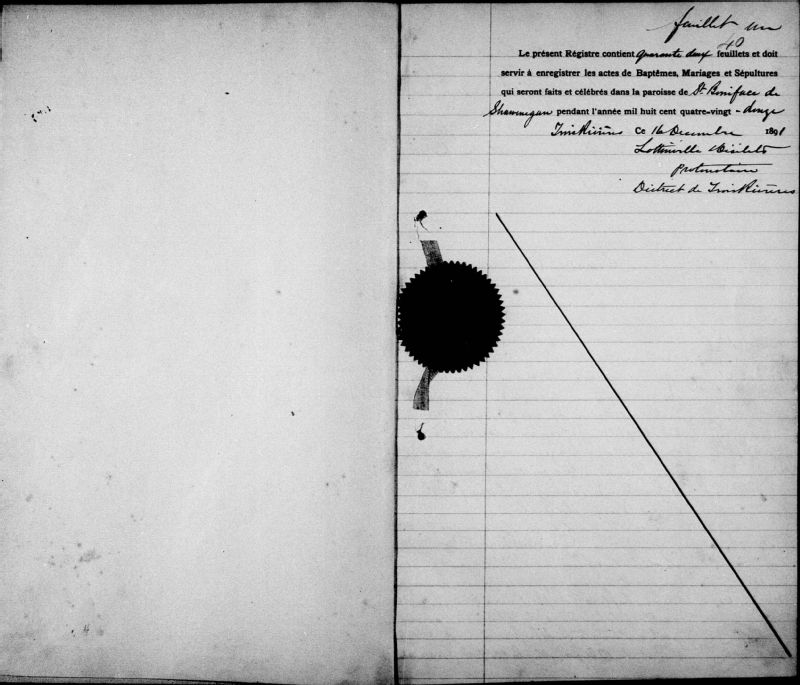 feuillet un
40
Le présent Régistre contient quarante deux feuillets et doit
servir à enregistrer les actes de Baptêmes, Mariages et Sépultures
qui seront faits et célébrés dans la paroisse de St. Boniface de
Shawinegan pendant l'année mil huit cent quatre-vingt - douze
Trois Rivières Ce 16 Decembre 1891
Protonotaire
District de Trois Rivières